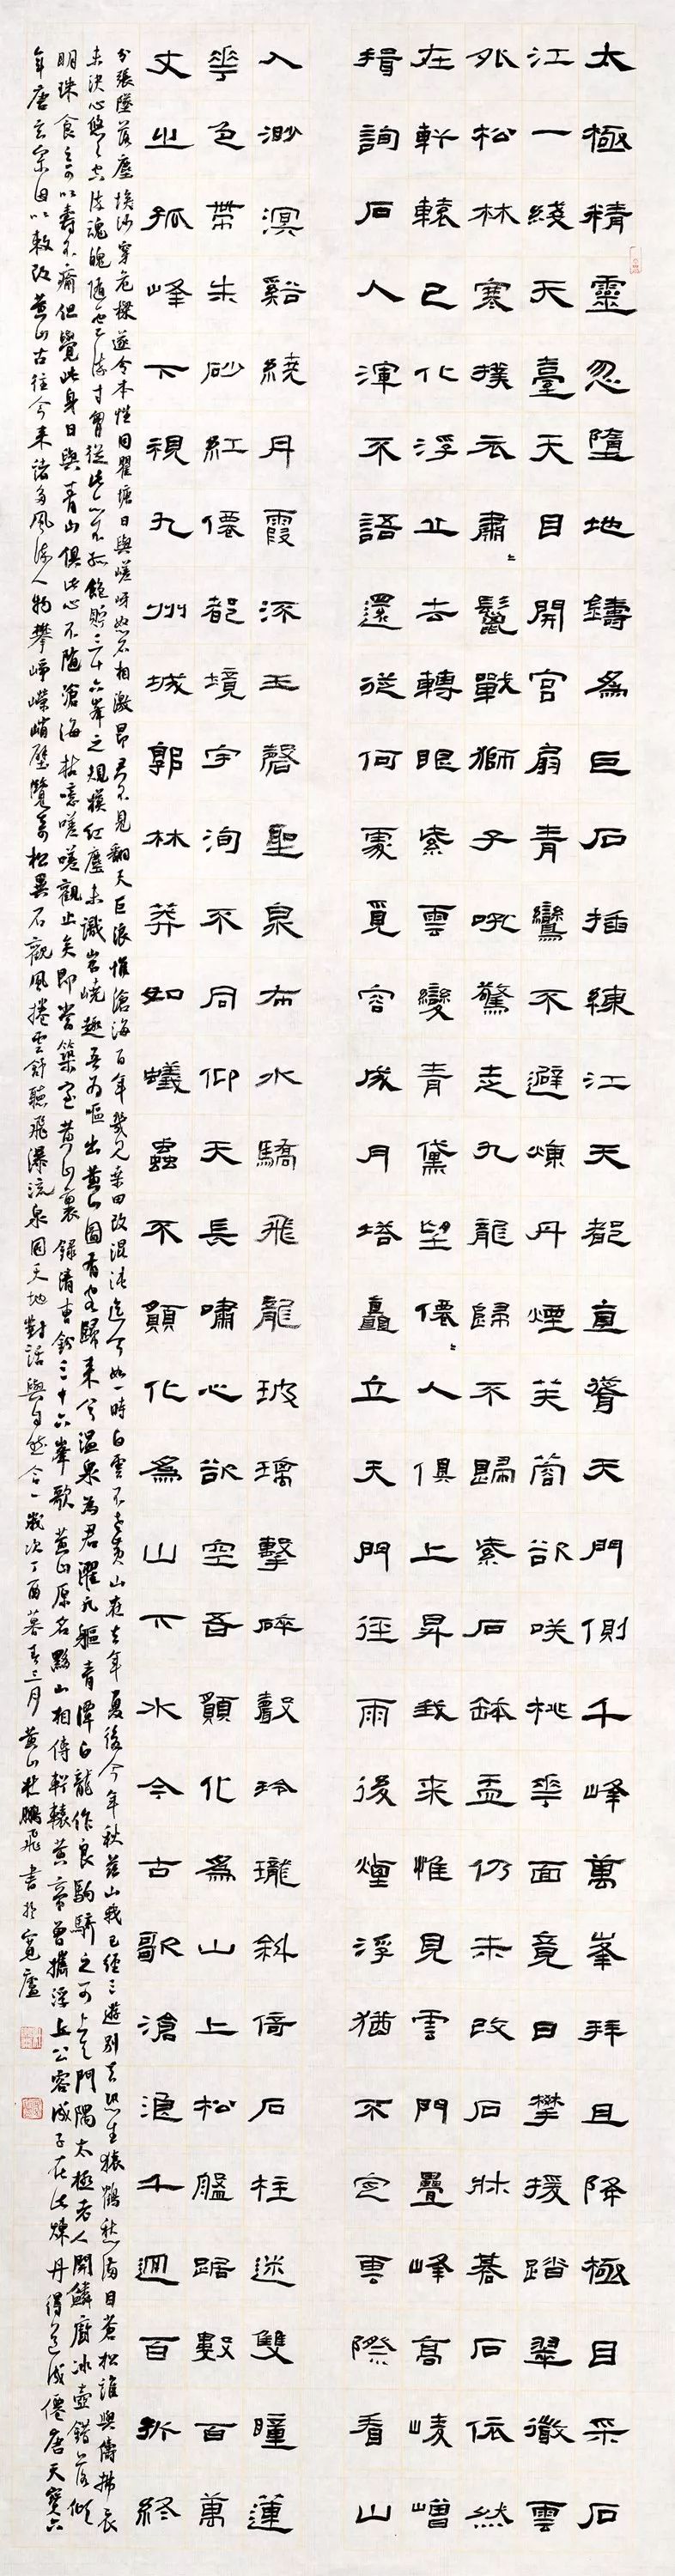 太極精靈忽墮地鑄為巨石插練江天都直聳天門側千峰萬峯拜且降極目采石
江一綫天臺天目開宮扇青鸞不避煉丹煙芙欲咲桃華面竟日攀援踏翠微雲
外松林寒撲衣肅〻鬣戰獅子吼驚走九龍歸不歸紫石鉢盂仍未改石牀棊石依然
在軒轅已化浮丘去轉眼紫雲變青黛望僊〻人俱上昇我來惟見雲門疊峰高崚嶒
揖詢石人渾不語還從何處覓容成月塔矗立天門徑雨後煙浮猶不定雲際看山
入渺溟谿繞丹霞添玉磬聖泉布水驕飛龍玻璃擊碎聲玲瓏斜倚石柱迷雙瞳蓮
華色帶朱砂紅僊都境宇洵不同仰天長嘯心欲空吾願化為山上松盤踞數百萬
丈之孤峰下視九州城郭林莽如蟻蟲不願化為山下水今古歌滄浪千迴百折終
分張墜落塵埃沙穿危磔遂令本性同瞿塘日與嵯岈怒石相激昂君不見翻天巨浪摧滄海百年幾見桑田改混沌迄今如一時白雲不老黃山在去年夏後今年秋茲山我已經三遊別去忍生猿鶴愁滿目蒼松誰與儔拂衣
未決心悠〻魂魄隨寸胷從此不孤飽貯三十六峯之規模紅塵未識岧嶢趣吾為嘔出黃山圖有客歸來兮溫泉為君濯凡軀青潭白龍作良駒驕之可上天門隅太極老人開鱗廚冰壺錯落傾
明珠食之可以壽不痡但覺此身日與青山俱此心不隨滄海枯噫嗟嗟觀止矣即當築室黃山裏 錄清曹鈖三十六峯歌 黃山原名黟山相傳軒轅黃帝曾攜浮丘公容成子在此煉丹得道成僊唐天寶六
年唐玄宗因以敕改黃山古往今來諸多風流人物攀崢嶸峭壁覽奇松異石觀風捲雲舒聽飛瀑流泉同天地對話與自然合一歲次丁酉暮春三月黃山杜鵬飛書於寬廬